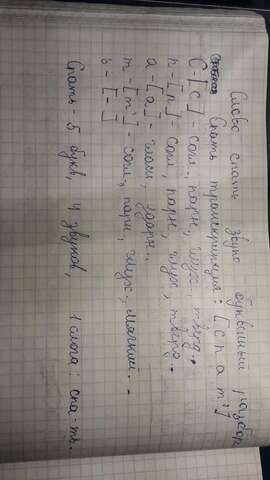 Слово спать звуко буквенный разбор
Спать транскрипция: [спат']
С-[с]- согл., парн., глух, тверд.
п-[п]- согл, парн, глух, тверд.
а-[а]- гласн, ударн..
т-[т']- согл., парн, глух, мягкий.
ь-[-]
Спать- 5 букв, 4 звуков, 1 слога: спа-ть.